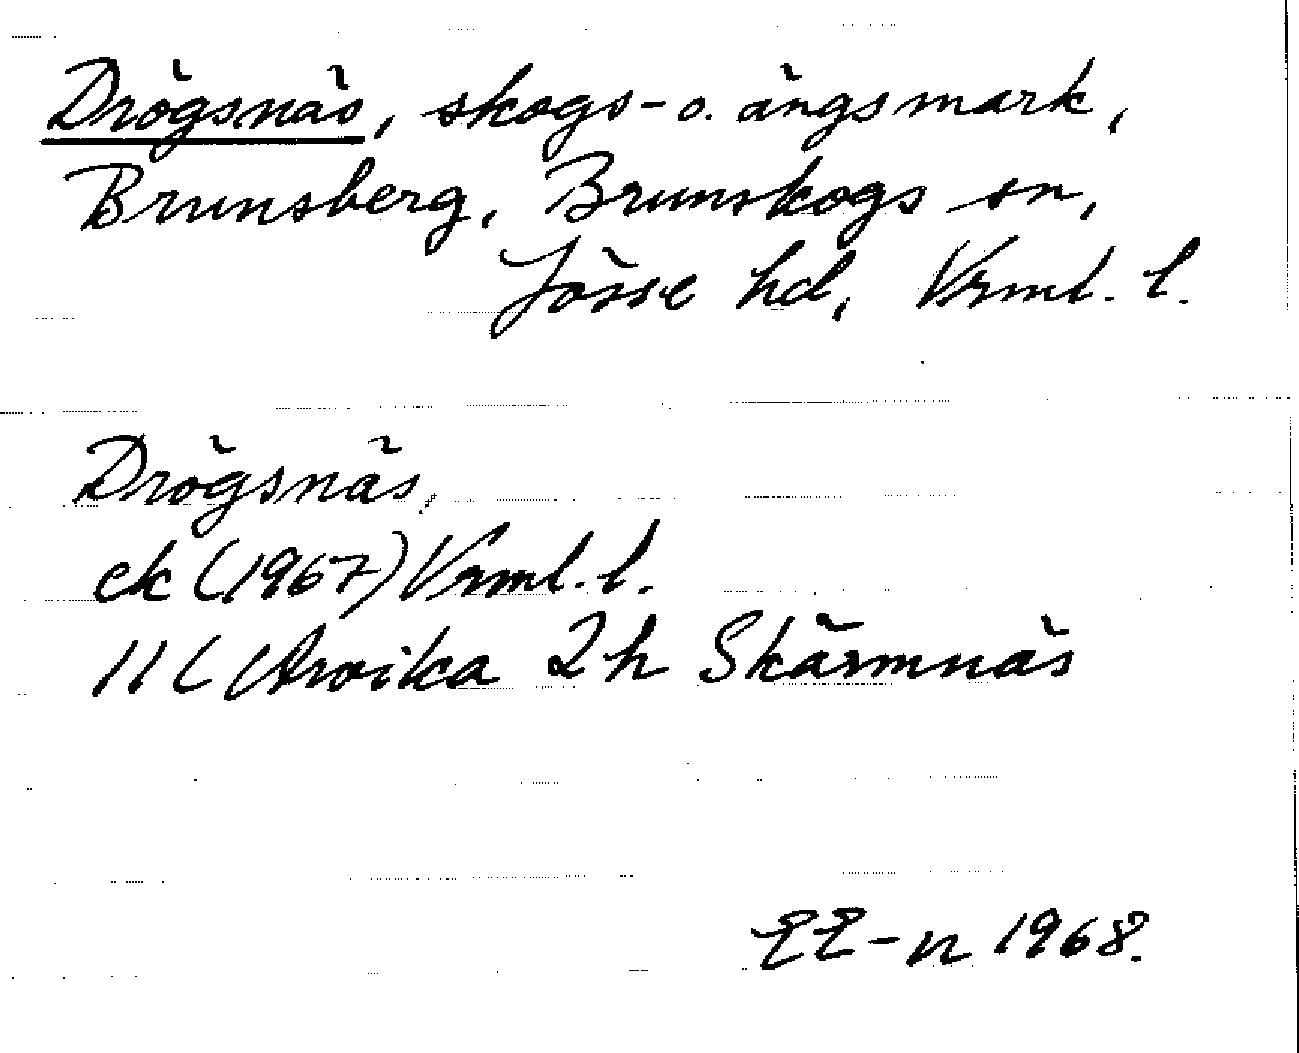 Drögsnäs, skogs- o. ängsmark,
Brunsberg, Brunskogs sn,
Jösse hd, Vrml. l.
Drögsnäs,
ek (1967) Vrml. l.
11 C Arvika 2 h Skärmnäs
EE-n 1968.